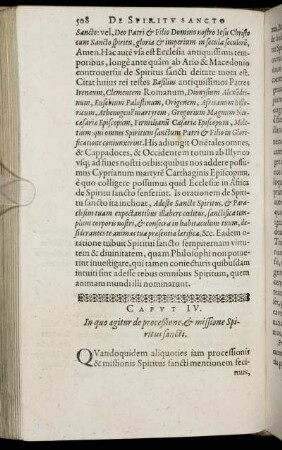 508 DE SPIRITV SANCTO
Sancto: vel, Deo Patri & Filio Domino nostro Iesu Christo
cum Sancto spiritu, gloria & imperium in secula seculorũ,
Amen. Hac autẽ vsa est Ecclesia antiquissimis tem-
poribus, longè ante quàm ab Ario & Macedonio
controuersia de Spiritus sancti deitate mota est.
Citat huius rei testes Basilius antiquissimos Patres
Irenæum, Clementem Romanum, Dionysium Alexãdri-
num, Eusebium Palæstinum, Origenem, Africanum histo-
ricum, Athenogenẽ martyrem, Gregorium Magnum Neo-
cæsariæ Episcopum, Firmilianũ Cæsariæ Episcopum, Meli-
tium: qui omnes Spiritum sanctum Patri & Filio in Glori-
ficatione coniunxerint. His adiungit Oriẽtales omnes,
& Cappadoces, & Occidentem totum ab Illyrico
vsq; ad fines nostri orbis: quibus nos addere possu-
mus Cyprianum martyrẽ Carthaginis Episcopum,
è quo colligere possumus quid Ecclesiæ in Africa
de Spiritu sancto senserint. Is orationem de Spiri-
tu sancto ita inchoat, Adesto Sancte Spiritus, & Para-
clesim tuam expectantibus illabere cœlitus, sanctifica tem-
plum corporis nostri, & consecra in habitaculum tuum, de-
siderantes te animas tua præsentia lætifica, &c. Eadem o-
ratione tribuit Spiritui sancto sempiternam virtu-
tem & diuinitatem, quam Philosophi non potue-
rint inuestigare, qui tamen coniecturis quibusdam
intuiti sint adesse rebus omnibus Spiritum, quem
animam mundi illi nominarunt.
CAPVT IV.
In quo agitur de processione, & missione Spi-
ritus sancti.
QVandoquidem aliquoties iam processionis
& missionis Spiritus sancti mentionem feci-
mus,